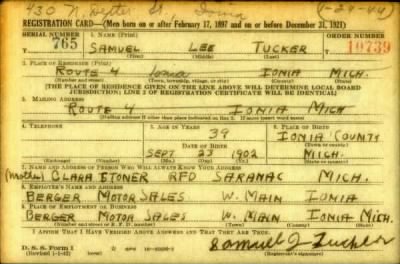 430 N. Dexter St. Ionia 1-28-44)
REGISTRATION CARD—(Men born on or after February 17, 1897 and on or before December 31, 1921)
SERIAL NUMBER 1. NAME (Print) ORDER NUMBER
765 SAMUEL LEE TUCKER 10739
(First) (Middle) (Last)
2. PLACE OF RESIDENCE (Print)
ROUTE 4 Ionia IONIA MICH.
(Number and street) (Town, township, village, or city) (County) (State)
[THE PLACE OF RESIDENCE GIVEN ON THE LINE ABOVE WILL DETERMINE LOCAL BOARD
JURISDICTION; LINE 2 OF REGISTRATION CERTIFICATE WILL BE IDENTICAL]
3. MAILING ADDRESS
ROUTE 4 IONIA MICH
[Mailing address if other than place indicated on line 2. If same insert word same]
4. TELEPHONE 5. AGE IN YEARS 6. PLACE OF BIRTH
39 IONIA COUNTY
DATE OF BIRTH (Town or county)
SEPT 27 1902 MICH.
(Exchange) (Number) (Mo.) (Day) (Yr.) (State or country)
7. NAME AND ADDRESS OF PERSON WHO WILL ALWAYS KNOW YOUR ADDRESS
(mother) CLARA STONER RFD SARANAC MICH.
8. EMPLOYER'S NAME AND ADDRESS
BERGER MOTOR SALES W. MAIN IONIA
9. PLACE OF EMPLOYMENT OR BUSINESS
BERGER MOTOR SALES W. MAIN IONIA MICH.
(Number and street or R. F. D. number) (Town) (County) (State)
I AFFIRM THAT I HAVE VERIFIED ABOVE ANSWERS AND THAT THEY ARE TRUE.
D. S. S. Form 1
(Revised 1-1-42) (over) Samuel L Tucker